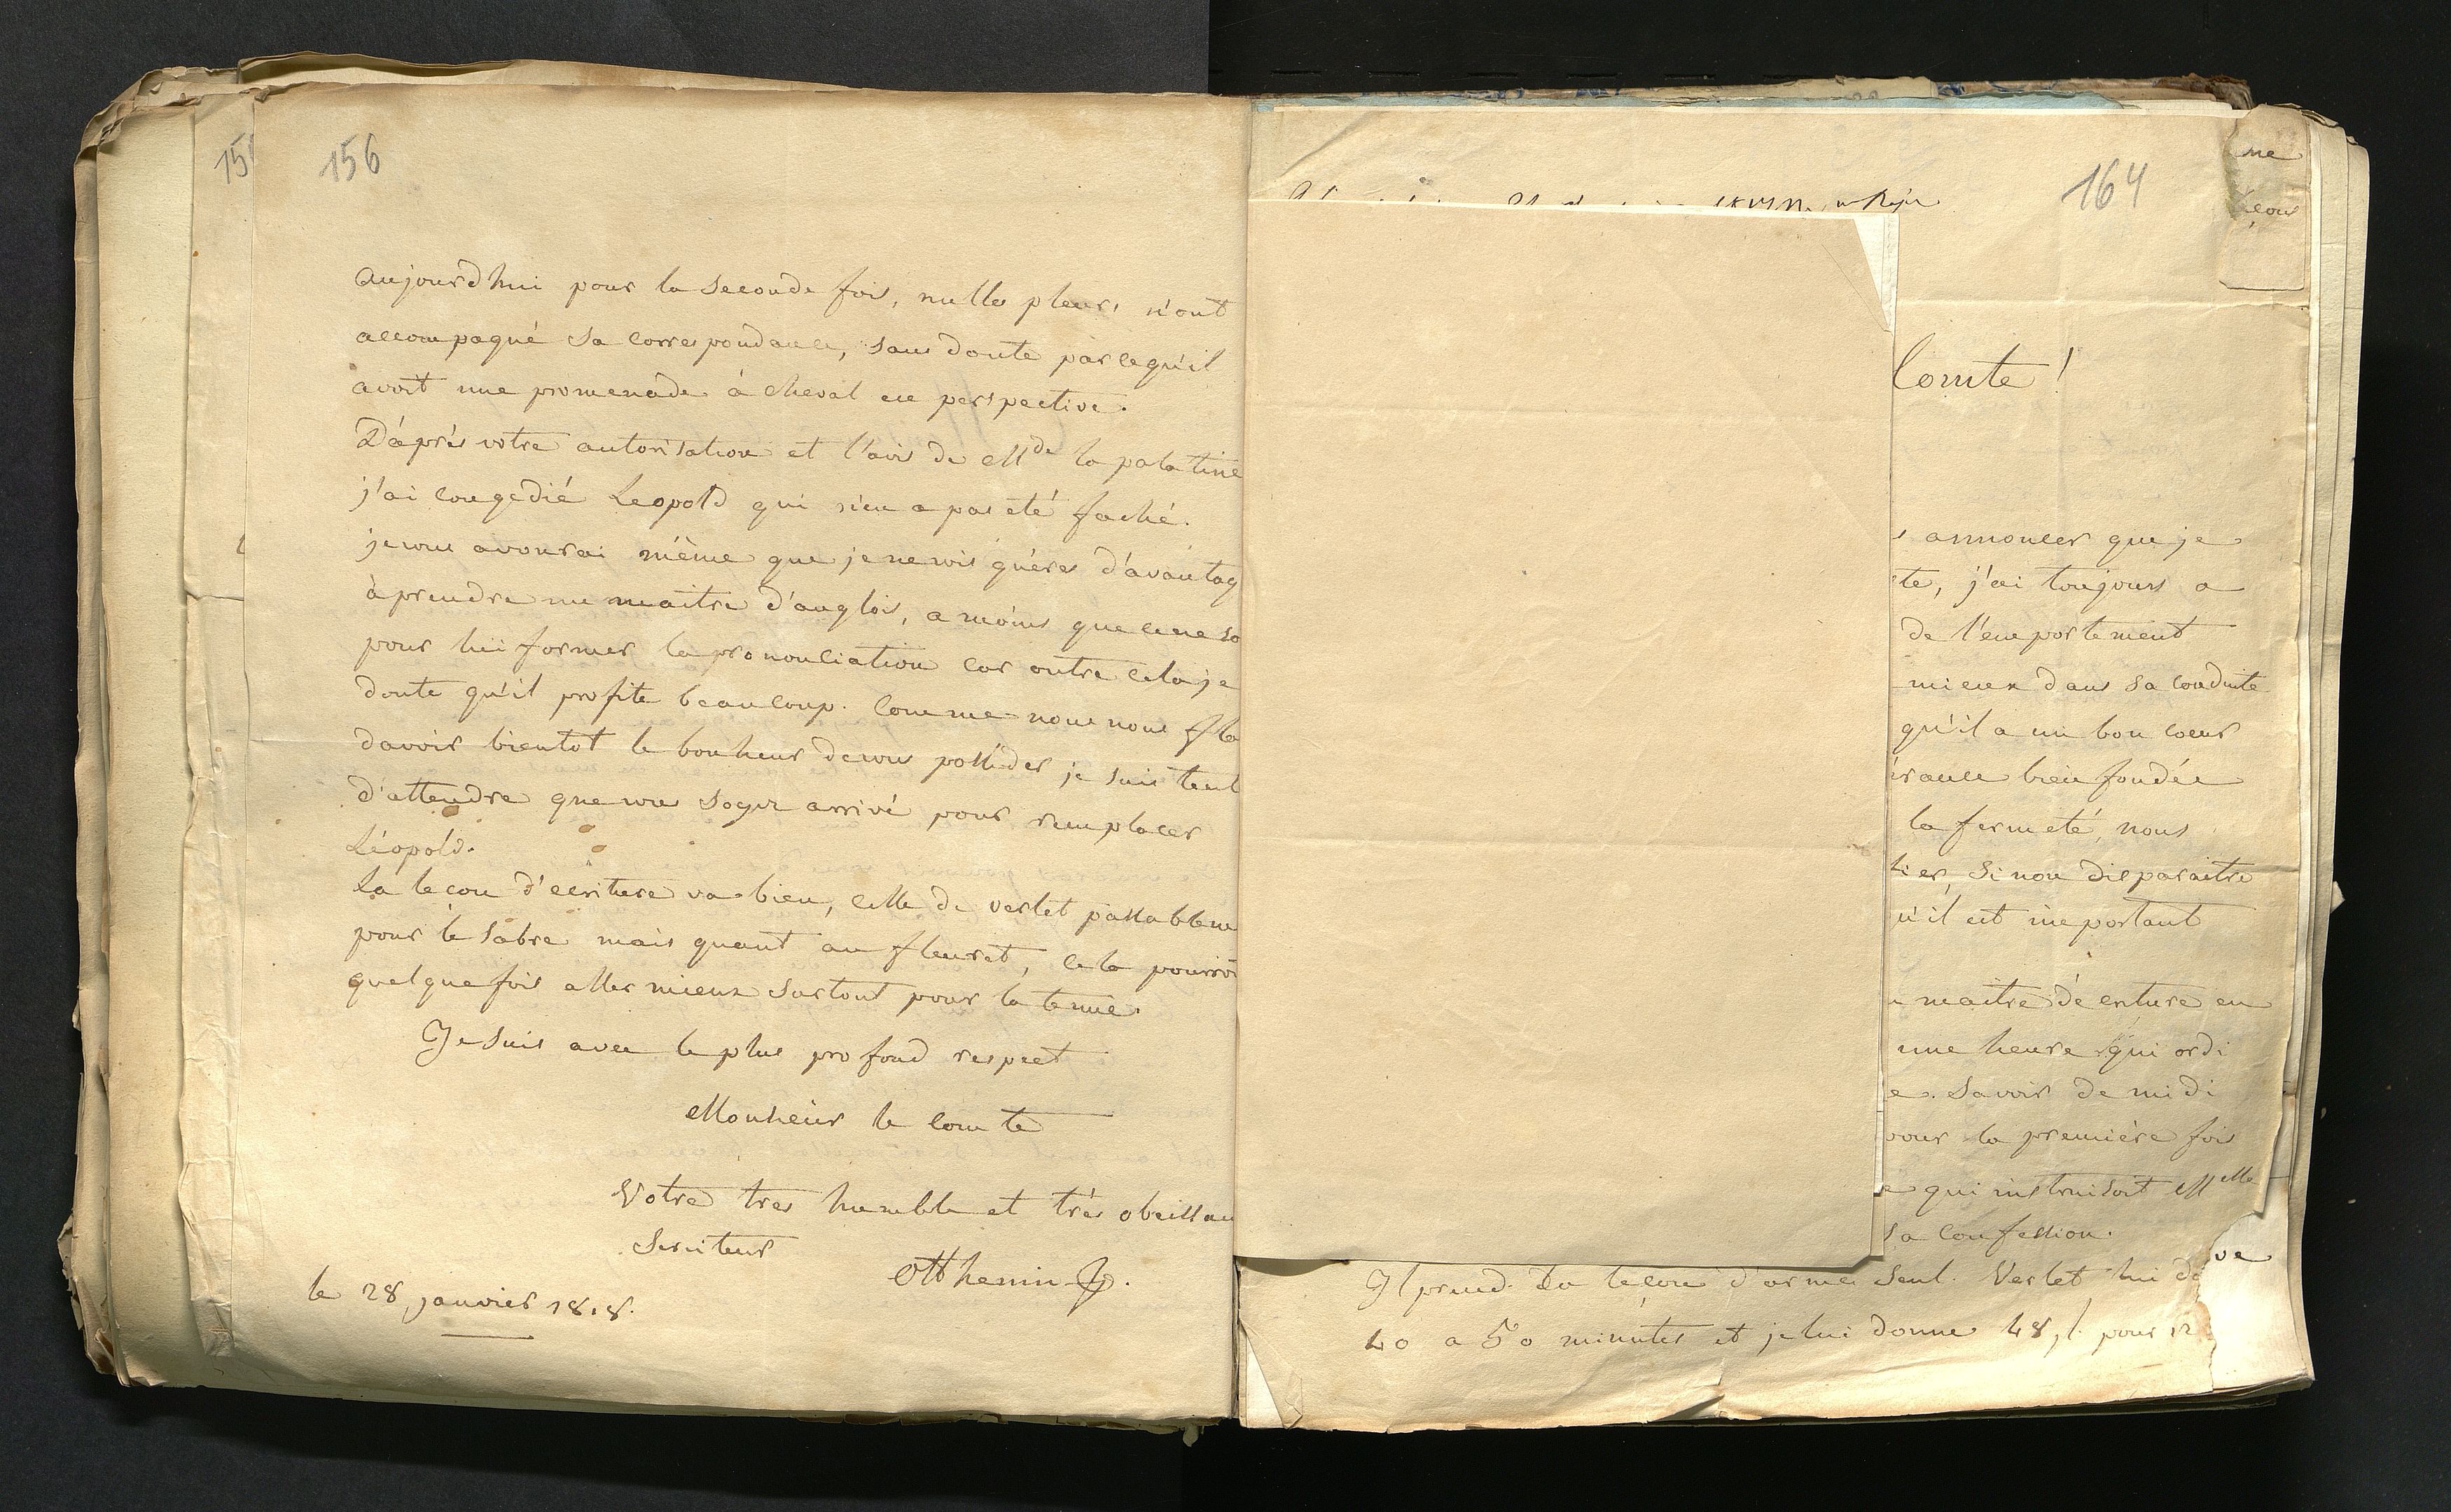 156
aujourd'hui pour la seconde fois, nulles pleurs n'ont
accompagné sa correspondance, sans doute parcequ'il
avoit une promenade à cheval en perspective.
D'après votre autorisation et l'avis de Mde la palatine
j'ai congedié Leopold qui n'en a pas été faché.
je vous avourai même que je ne vois guères d'avantag
à prendre un maitre d'anglois, a moins que ce ne so
pour lui former la prononciation car outre cela je
doute qu'il profite beaucoup. Comme nous nous fla
davoir bientot le bonheur de vous posséder je suis tent
d'attendre que vous soyez arrivé pour remplacer
Léopold.
La leçon d'ecriture va bien, celle de Verlet passableme
pour le sabre mais quant au fleuret, cela pourroi
quelquefois aller mieux surtout pour la tenue.
Je suis avec le plus profond respect
Monsieur le comte
Votre tres humble et très obeissan
Serviteur
Otthenin
le 28 janvier 1818.
164
Comte !
annoncer que je
te, j'ai toujours a
de l'emportement
mieux dans sa conduite
qu'il a un bon coeur
érance bien fondée
la fermeté, nous
lier, si non disparaitre
u'il est important
maitre d'écriture en
une heure qui ordi
e. Savoir de midi
pour la première fois
e qui instruisoit Melle
sa confession.
Il prend sa leçon d'arme seul. Verlet lui do
40 a 50 minutes et je lui donne 48 pour 12